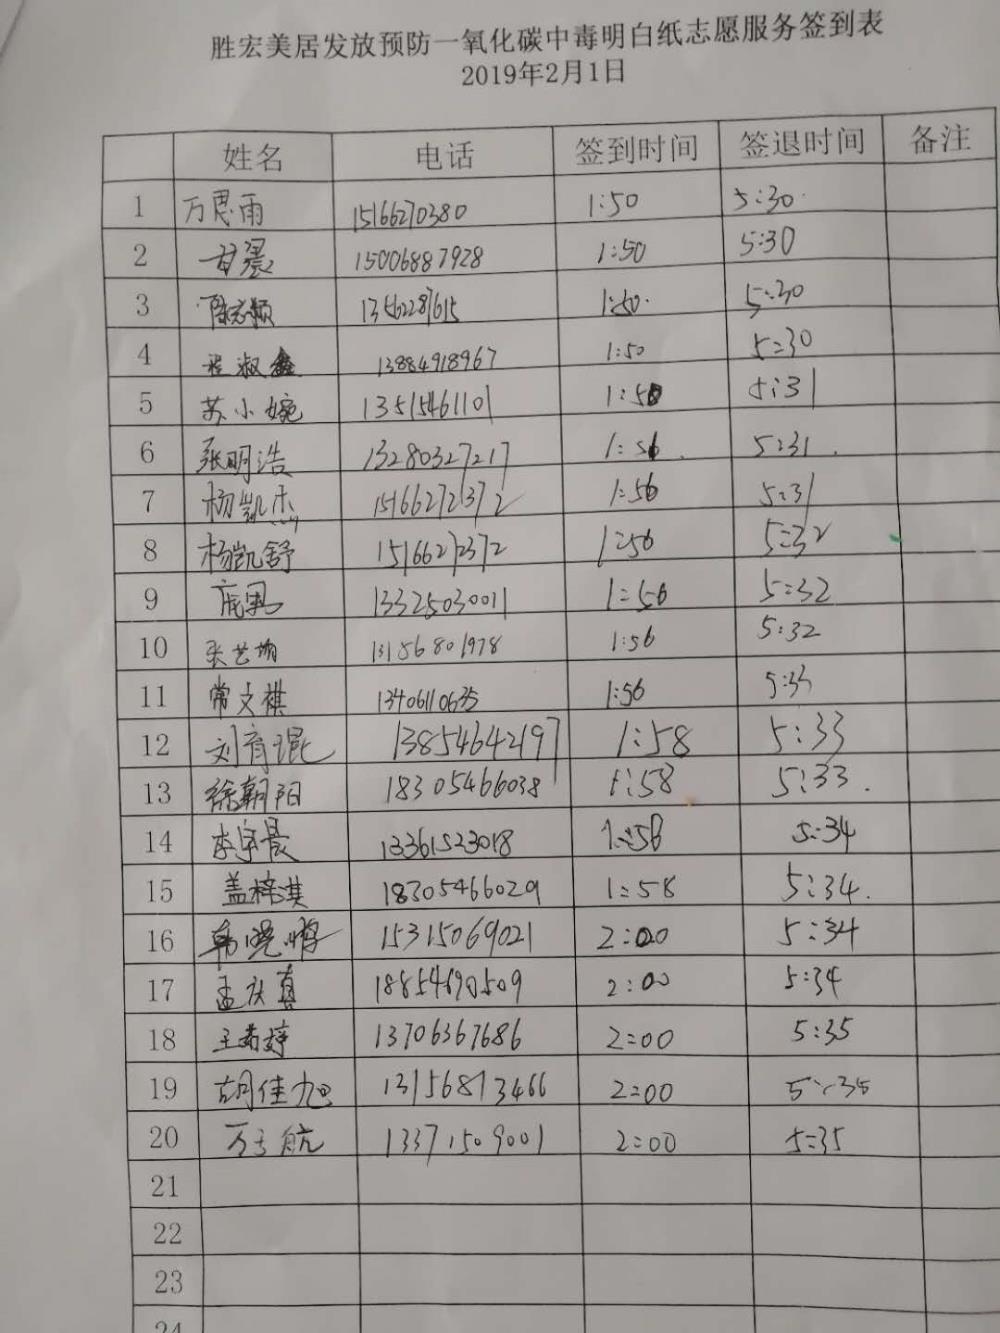 胜宏美居发放预防一氧化碳中毒明白纸志愿服务签到表
2019年2月1日
姓名 电话 签到时间 签退时间 备注
1 万思雨 15166270380 1:50 5:30
2 甘晨 15006887928 1:50 5:30
3 1:50 5:30
4 13884918967 1:50 5:30
5 苏小婉 13515461101 5:31
6 张明浩 13280327217 5:31
7 杨凯杰 15166272372 1:56 5:31
8 杨凯舒 15166272372 1:56 5:32
9 13325030011 1:56 5:32
10 13156801978 1:56 5:32
11 常文祺 13406110635 1:56 5:33
12 刘育琨 13854642197 1:58 5:33
13 徐朝阳 18305466038 1:58 5:33
14 李宇晨 13361523018 1:58 5:34
15 盖梓淇 18305466029 1:58 5:34
16 韩晓鹏 15315069021 2:00 5:34
17 孟庆真 2:00 5:34
18 13706367686 2:00 5:35
19 胡佳旭 13156873466 2:00 5:35
20 13371509001 2:00 5:35
21
22
23
24